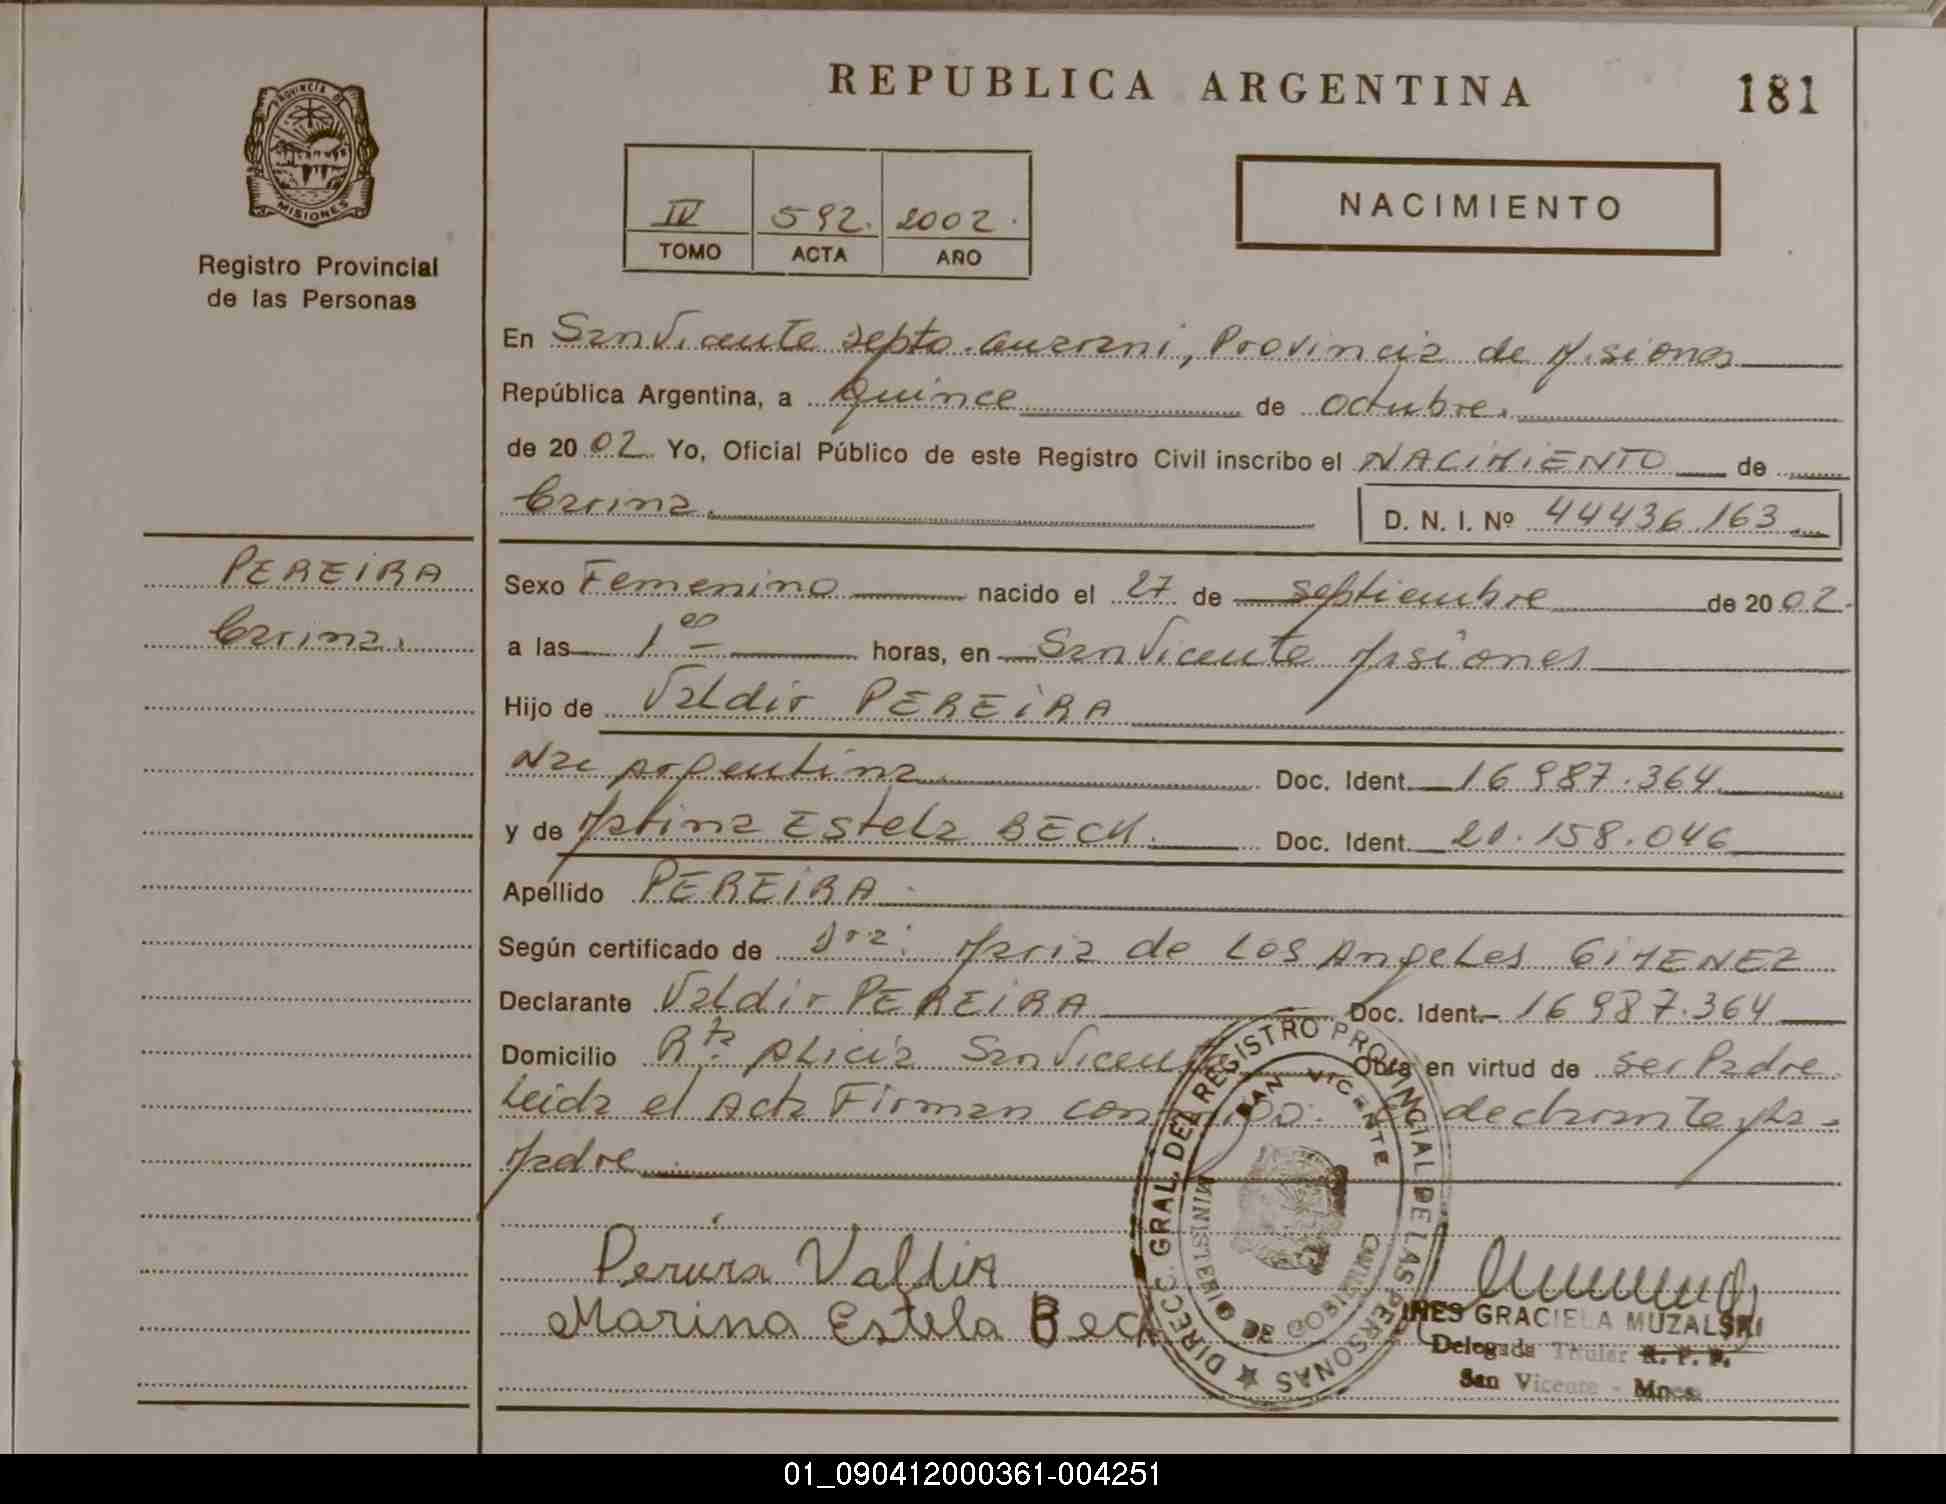 PROVINCIA DE
MISIONES
Registro Provincial
de las Personas
REPUBLICA ARGENTINA
181
IV 592. 2002.
TOMO ACTA AÑO
NACIMIENTO
En San Vicente Depto. Guarani, Provincia de Misiones
República Argentina, a Quince de octubre.
de 2002 Yo, Oficial Público de este Registro Civil inscribo el NACIMIENTO de
Carina.
D. N. I. Nº 44436163
PEREIRA
Carina.
Sexo Femenino nacido el 27 de septiembre de 2002.
a las 1 00 horas, en San Vicente Misiones
Hijo de Valdir PEREIRA
Nac argentina Doc. Ident. 16987.364
y de Marina Estela BECK. Doc. Ident. 21.158.046
Apellido PEREIRA.
Según certificado de Dra: Maria de Los Angeles GIMENEZ
Declarante Valdir PEREIRA Doc. Ident. 16987.364
Domicilio Rta. Alicia San Vicente Obra en virtud de ser Padre
Leida el Acta Firman el declarante y la
Madre
Pereira Valdir
Marina Estela Beck
DIRECC. GRAL. DEL REGISTRO PROVINCIAL DE LAS PERSONAS
SAN VICENTE
MINISTERIO DE GOBIERNO
INES GRACIELA MUZALSKI
Delegada Titular R. P. P.
San Vicente - Mnes.
01_090412000361-004251